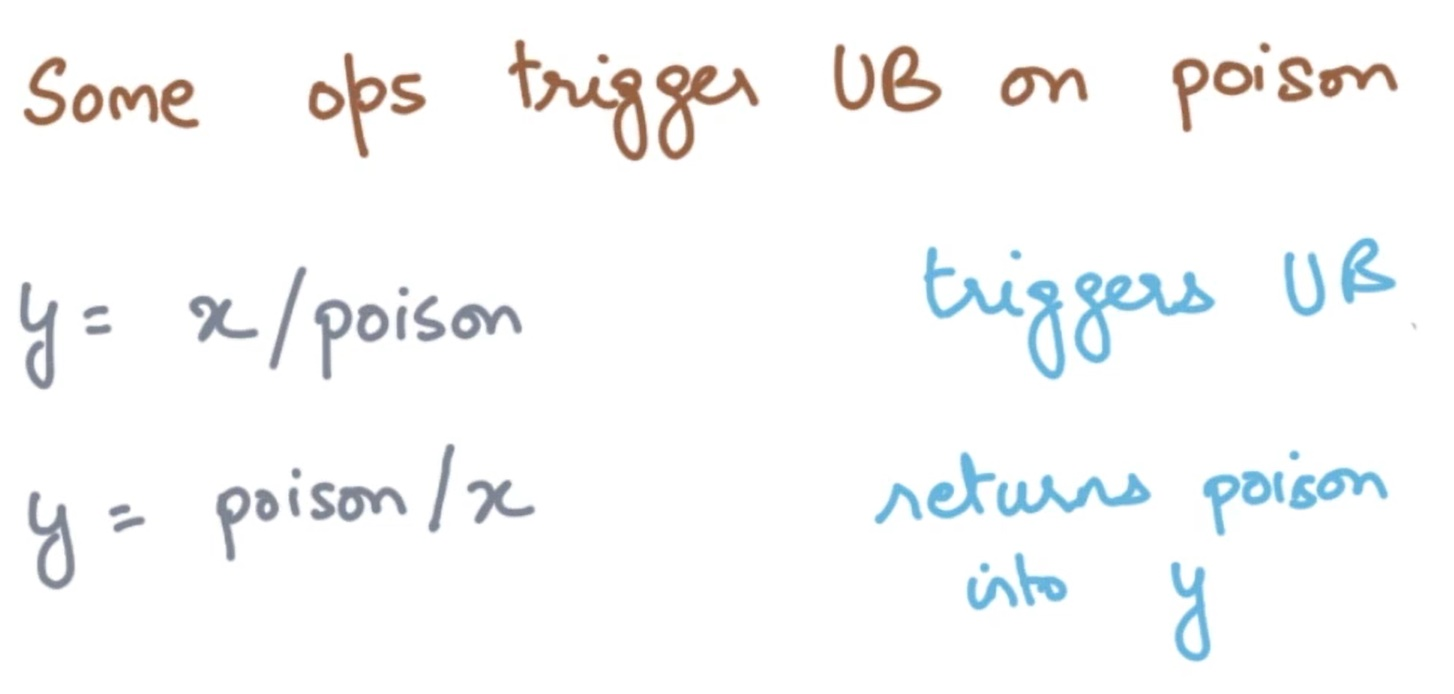 Some ops trigger UB on poison
y = x/poison triggers UB
y = poison/x returns poison
into y